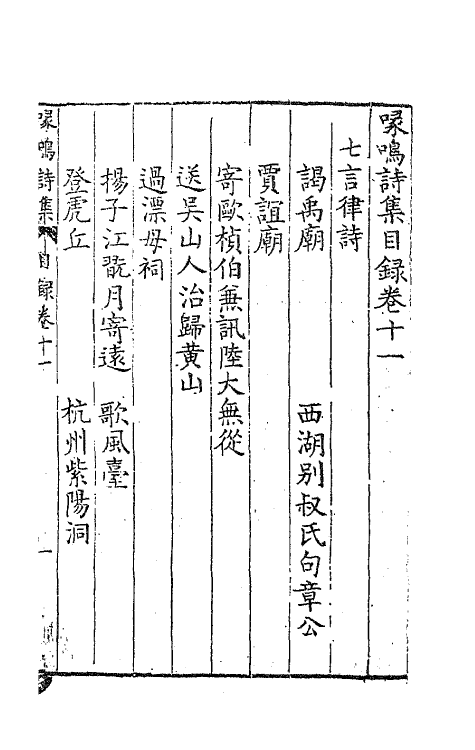 喙鳴詩集目録卷十一
七言律詩
謁禹廟　西湖别叔氏句章公
賈誼廟
寄歐楨伯兼訊陸大無從
送吳山人治歸黄山
過漂母祠
揚子江翫月寄遠　歌風臺
登虎丘　杭州紫陽洞
喙鳴詩集　目録卷十一　一